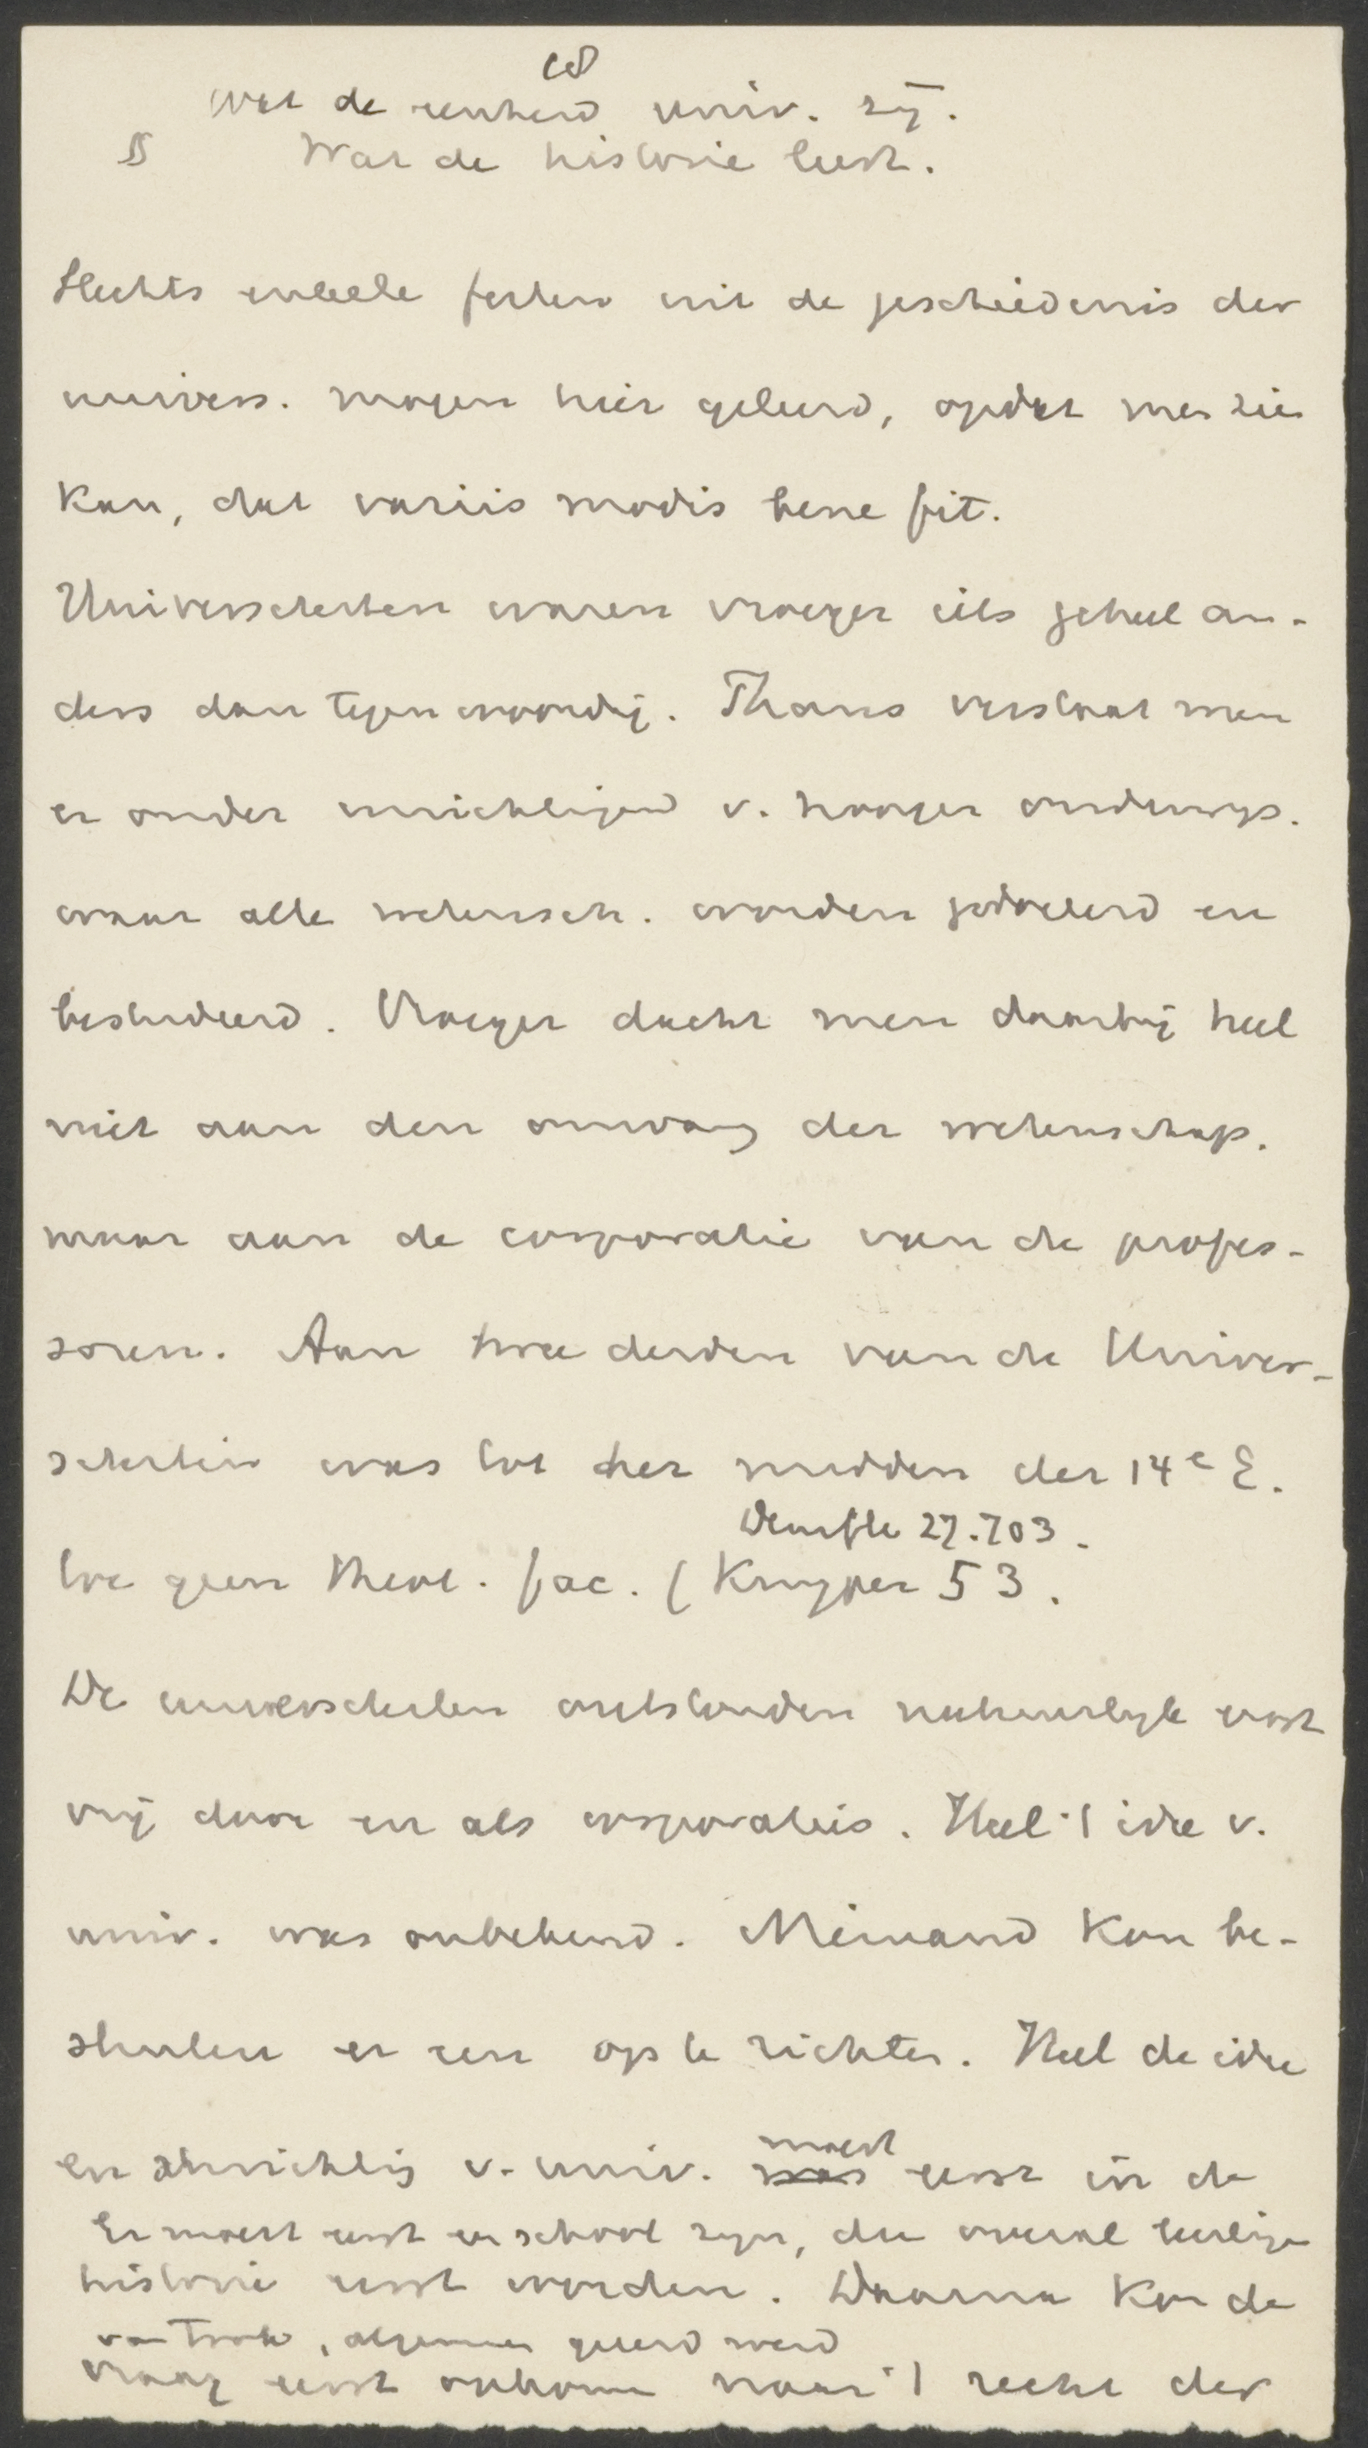 Wat de eenheid univ. zij.
§ Wat de historie leert.
Slechts enkele feiten uit de geschiedenis der
univers. mogen hier geleerd, opdat men zien
kan, dat variis modis bene fit.
Universiteiten waren vroeger iets geheel an-
ders dan tegenwoordig. Thans verstaat men
er onder inrichtingen v. hooger onderwijs.
waar alle wetensch. worden gedoceerd en
bestudeerd. Vroeger dacht men daarbij heel
niet aan den omvang der wetenschap.
maar aan de corporatie van de profes-
soren. Aan twee derden van de Univer-
siteiten was tot het midden der 14e E.
Denifle 27.703.
toe geen theol. fac. (Kuyper 53.
De universiteiten ontstonden natuurlijk eerst
vrij door en als corporaties. Heel 't idee v.
univ. was onbekend. Niemand kon be-
sluiten er een op te richten. Heel de idee
moest
en inrichting v. univ. was eerst in de
Er moest eerst een school zijn, die overal leerlingen
historie eerst worden. Daarna kon de
van trok, algemeen geëerd werd
vraag eerst opkomen naar 't recht der